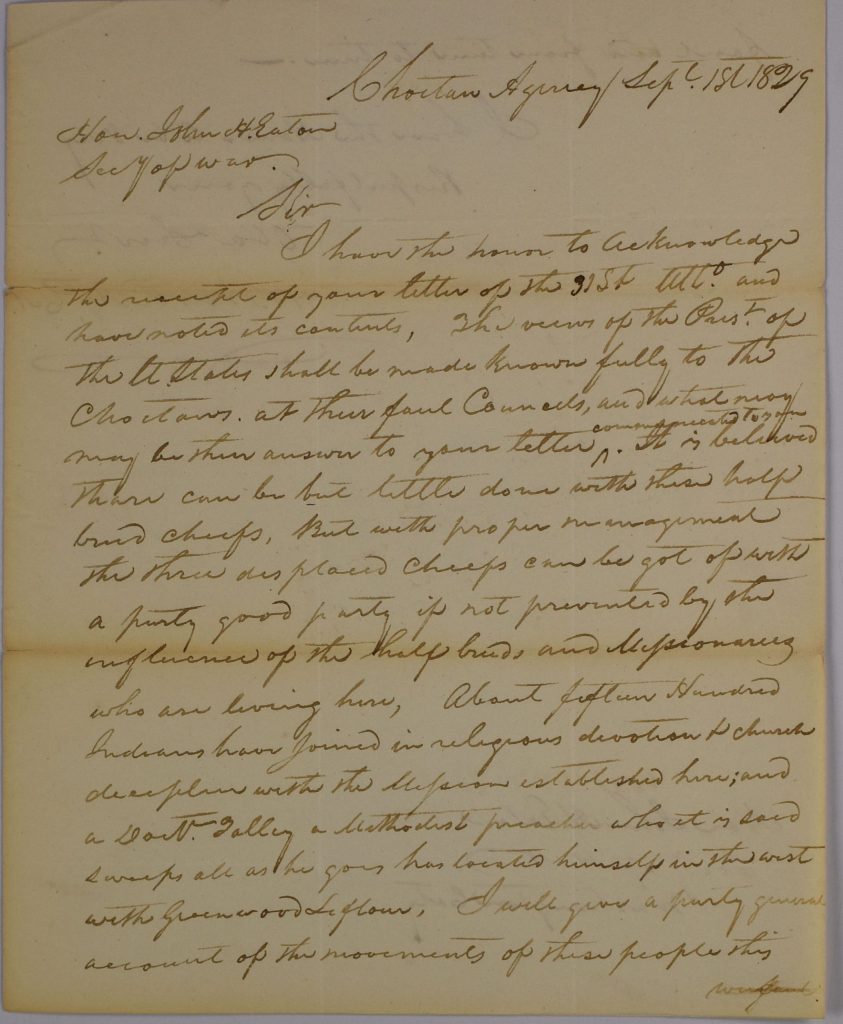 Choctaw Agency Sept. 1st 1829
Hon. John H. Eaton
Secy of war.
Sir
I have the honor to acknowledge
the receipt of your letter of the 31st Ulto. and
have noted its contents, The views of the Prest. of
the U. States shall be made known fully to the
Choctaws. at their faul Councels, and what may
communicated to you
may be their answer to your letter ^. It is believed
thare can be but little done with these half
breed cheefs, But with proper management
the three displaced cheefs can be got of with
a purty good party if not prevented by the
influence of the half breeds and Missionareez
who are living here, About fifteen Hundred
Indians have joined in religious devotion & church
deciplin with the Mission established here; and
a Doctr. Talley a Methodist preacher who it is said
sweeps all as he goes has located himself in the west
with Greenwood Leflour, I will give a purty general
account of the movements of these people this